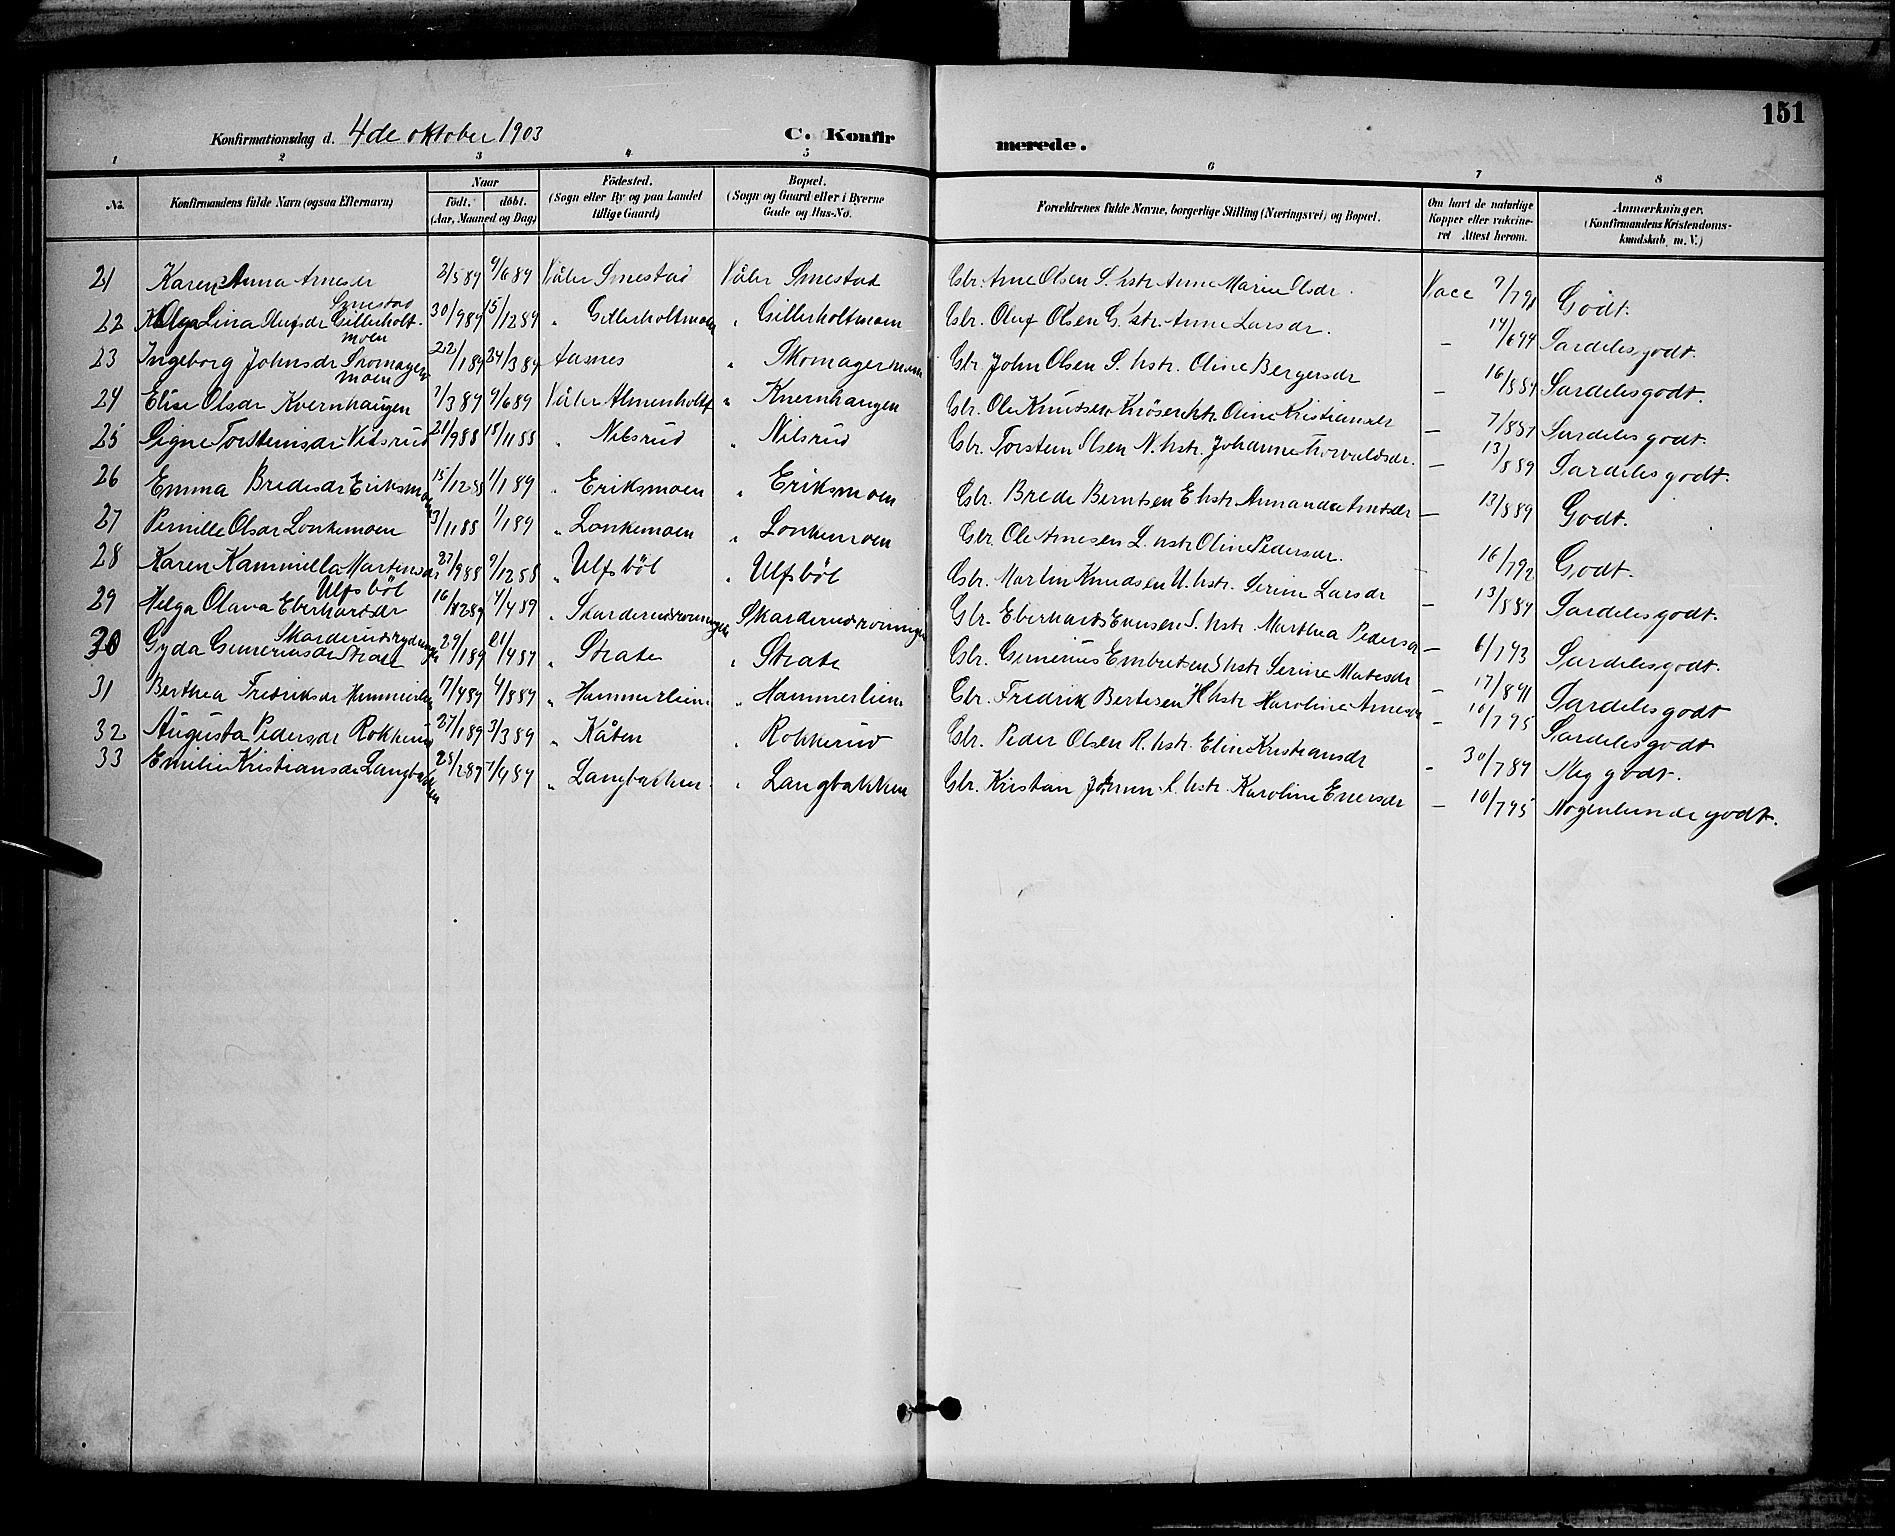 151
Konfirmationsdag d. 4de oktober 1903
C. Konfir
merede.
1 2 3 4 5 6 7 8
No.
Konfirmandens fulde Navn (ogsaa Efternavn)
Naar
födt. döbt.
(Aar, Maaned og Dag)
Födested.
(Sogn eller By og paa Landet
tillige Gaard)
Bopæl.
(Sogn og Gaard eller i Byerne
Gade og Hus-No.
Forældrenes fulde Navne, borgerlige Stilling (Næringsvei) og Bopæl.
Om havt de naturlige
Kopper eller vakcine-
ret Attest herom.
Anmærkninger.
(Konfirmandens Kristendoms-
kundskab, m. V.)
21 Karen Anna Arnesdr Smestad 2/5 89 9/6 89 Våler Smestad Våler Smestad Gbr. Arne Olsen S. hstr. Anne Marie Olsdr. Vacc 9/7 91 Godt.
22 Olga Lina Olufsdr Gillerholtmoen 30/9 89 15/12 89 " Gillerholtmoen " Gillerholtmoen Gbr. Oluf Olsen G. hstr. Anne Larsdr. – 14/6 94 Særdeles godt.
23 Ingeborg Johnsdr Skomagermoen 22/1 89 24/3 89 Aasnes " Skomagermoen Gbr. John Olsen S. hstr. Oline Bergersdr – 16/8 89 Særdeles godt.
24 Elise Olsdr Kvernhaugen 7/3 89 9/6 89 Våler Almenholtf " Kvernhaugen Gbr. Ole Knutsen hstr. Oline Kristiansdr – 7/8 89 Særdeles godt.
25 Signe Torstensdr Nilsrud 21/9 88 18/11 88 " Nilsrud " Nilsrud Gbr. Torsten Olsen N. hstr. Johanne Torvaldsdr. – 13/8 89 Særdeles godt.
26 Emma Bredesdr Eriksmoen 15/12 88 1/1 89 " Eriksmoen " Eriksmoen Gbr. Brede Berntsen E hstr Annanda Arntsdr – 13/8 89 Godt.
27 Pernille Olsdr Lonkemoen 3/11 88 1/1 89 " Lonkemoen " Lonkemoen Gbr. Ole Arnesen L. hstr Oline Pedersdr. – 16/7 92 Godt.
28 Karen Kammilla Martinsdr Ulfsböl 27/9 88 9/12 88 " Ulfsböl " Ulfsböl Gbr. Martin Knudsen U. hstr. Serine Larsdr – 13/8 89 Særdeles godt.
29 Helga Olava Eberhardsdr Skarderudrydningen 7/4 89 " Skarderudröningen " Skarderudröningen Gbr. Eberhard Evensen S. hstr. Marthea Pedersdr – 6/7 93 Særdeles godt.
30 Gyda Gunneriusdr Strate 29/1 89 21/4 89 " Strate " Strate Gbr. Gunerius Embretsen S hstr Serine Matesdr – 17/8 91 Særdeles godt
31 Berthea Fredriksdr Hammerlien 17/4 89 4/8 89 " Hammerlien " Hammerlien Gbr. Fredrik Bertesen H hstr Karoline Arnesdr – 10/7 95 Særdeles godt
32 Augusta Pedersdr Rokkerud 27/1 89 3/3 89 " Kåten " Rokkerud Gbr. Peder Olsen R. hstr. Eline Kristiansdr – 30/7 89 Meg godt.
33 Emilie Kristiansdr Langbakken 28/2 89 7/4 89 " Langbakken " Langbakken Gbr. Kristian Johnsen L. hstr Karoline Enersdr – 10/7 95 Nogenlunde godt.